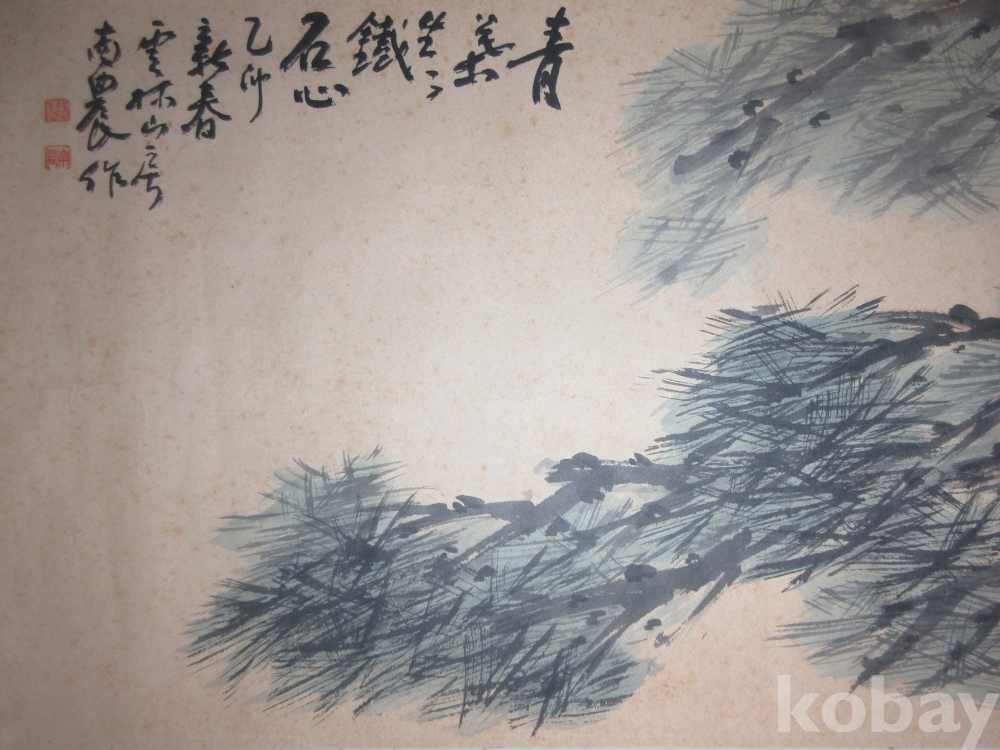 青
葉
鐵
石心
乙卯
新春
雲林山房
南農作
kobay